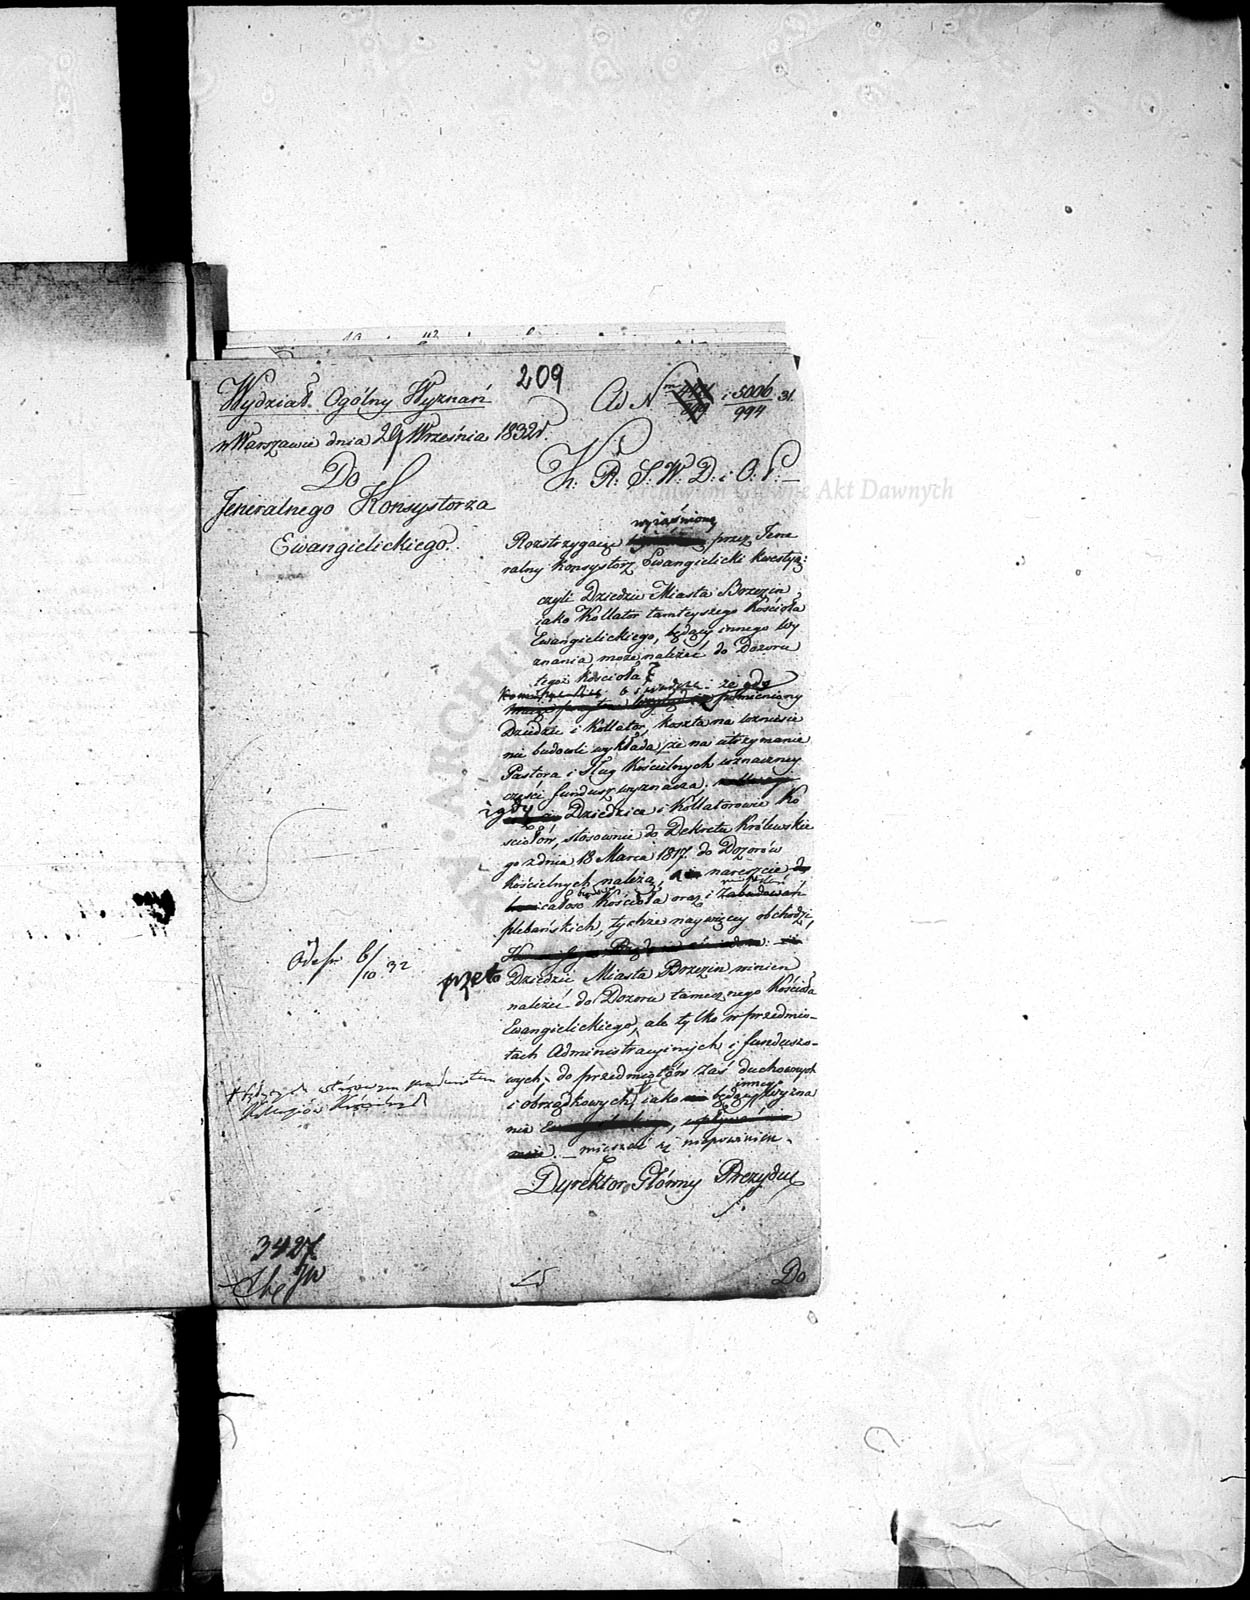 209
Wydział Ogólny Wyznań
w Warszawie dnia 29 Września 1832 r.
Do
Jeneralnego Konsystorza
Ewangielickiego.
Ad N i 5006/994 31.
K. R. S. W. D. i O. P.
Archiwum Główne Akt Dawnych
wyjaśnioną
Rozstrzygając przez Jene
ralny Konsystorz Ewangielicki kwestyą:
czyli Dziedzic Miasta Brzezin
jako Kollator tamteyszego Kościoła
Ewangielickiego, będący innego Wy
znania może należeć do Dozoru
tegoż Kościoła?
że gdy
pomieniony
Dziedzic i Kollator, koszta na wzniesie
nie budowli wykłada, że na utrzymanie
Pastora i Sług Kościelnych w znaczney
części fundusz wyznacza.
i gdy Dziedzice i Kollatorowie Ko
ściołów, stosownie do Dekretu Królewskie
go z dnia 18 Marca 1817 do Dozorów
Kościelnych należą, nareszcie
całość Kościoła oraz i Zabudowań
plebańskich, tychże naywięcey obchodzi,
przeto
Dziedzic Miasta Brzezin winien
należeć do Dozoru tamecznego Kościoła
Ewangielickiego, ale tylko w przedmio-
tach Administracyinych i funduszo-
wych, do przedmiotów zaś duchownych
i obrządkowych, jako będący innego Wyzna
nia
mieszać się niepowinien.
Dyrektor Główny Prezyduj
6/10 32
3427
Do